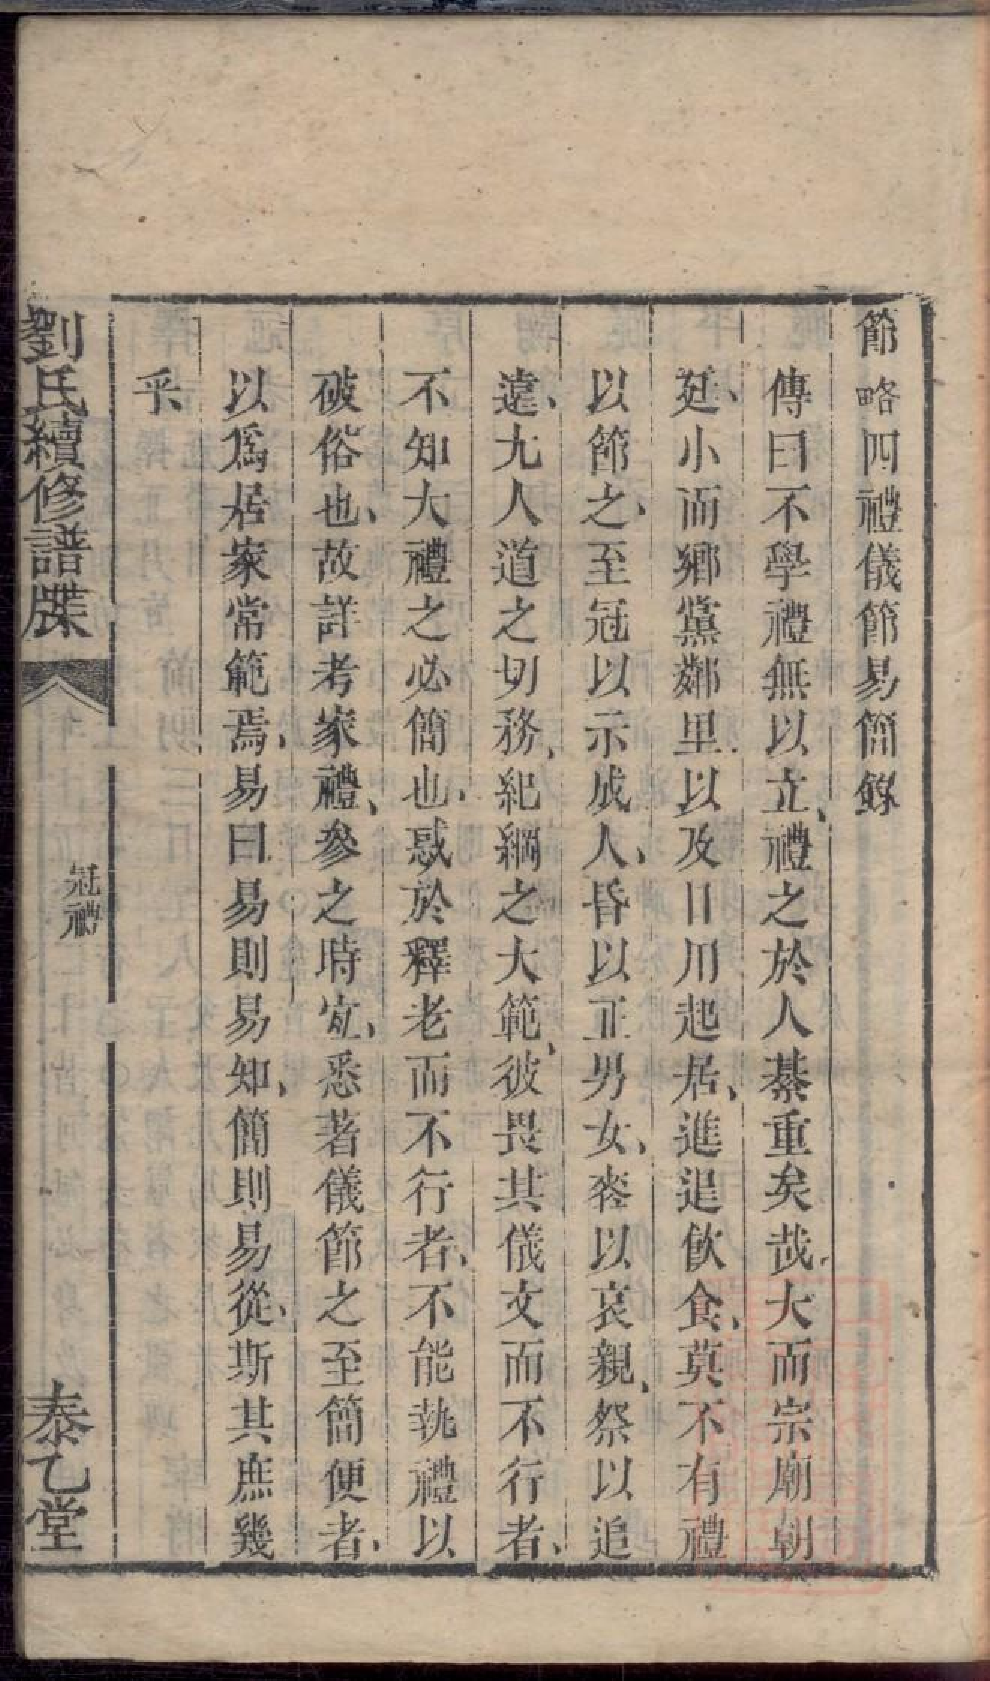 節略四禮儀節易簡錄
傳曰不學禮無以立、禮之於人綦重矣哉、大而宗廟朝
廷、小而鄉黨鄰里、以及日用起居、進退飲食、莫不有禮
以節之、至冠以示成人、昏以正男女、喪以哀親、祭以追
遠、尤人道之切務、紀綱之大範、彼畏其儀文而不行者、
不知大禮之必簡也、惑於釋老而不行者、不能執禮以
破俗也、故詳考家禮、參之時宜、悉著儀節之至簡便者、
以爲居家常範焉、易曰易則易知、簡則易從、斯其庶幾
乎
劉氏續修譜牒
冠禮
泰乙堂